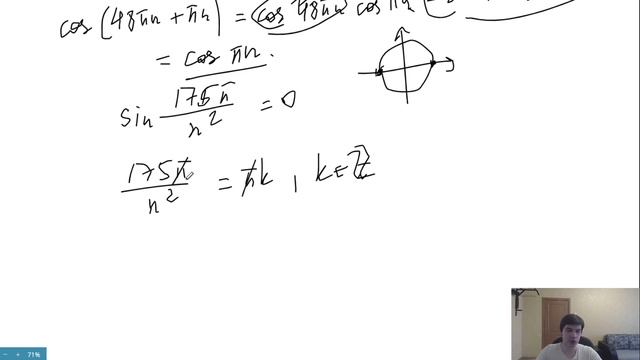 cos(48πn + πn) = cos 48πn cos πn
= cos πn.
sin 175π/n² = 0
175π/n² = πk, k∈ℤ
- + 71%